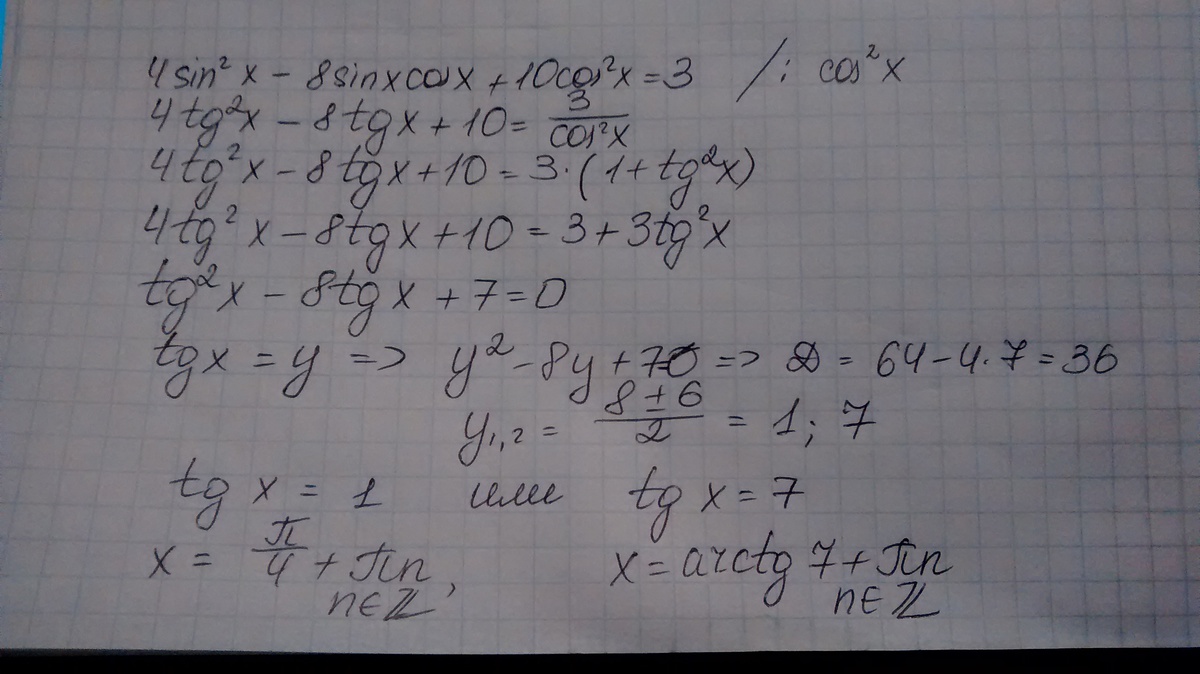 4sin²x - 8sinxcosx + 10cos²x = 3 /: cos²x
4tg²x - 8tgx + 10 = 3/cos²x
4tg²x - 8tgx + 10 = 3·(1 + tg²x)
4tg²x - 8tgx + 10 = 3 + 3tg²x
tg²x - 8tgx + 7 = 0
tgx = y => y² - 8y + 7=0 => D = 64 - 4·7 = 36
y₁,₂ = (8 ± 6)/2 = 1; 7
tg x = 1 или tg x = 7
x = π/4 + πn, x = arctg 7 + πn
n∈Z n∈Z